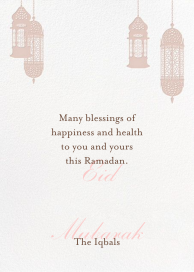 Many blessings of
happiness and health
to you and yours
this Ramadan.
Eid
Mubarak
The Iqbals